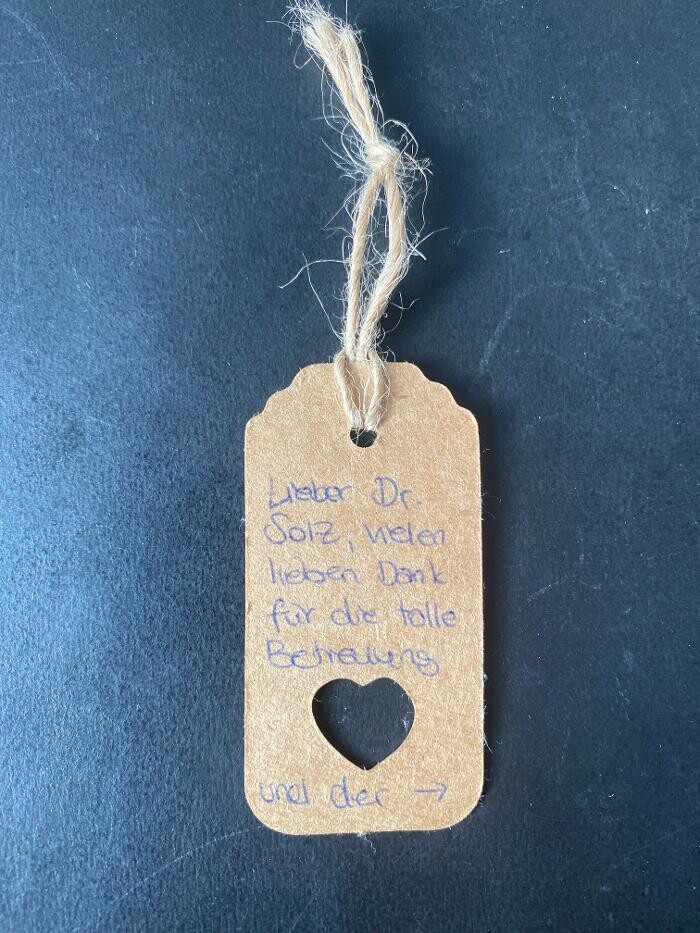 Lieber Dr.
Solz, vielen
lieben Dank
für die tolle
Betreuung
und der →